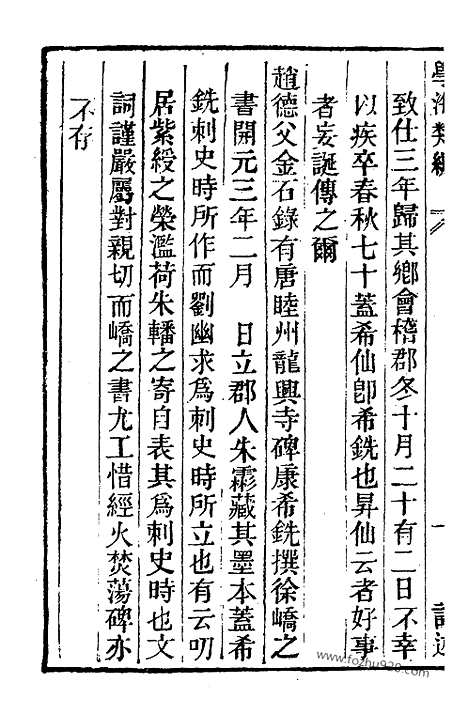 學海類編
致仕三年歸其鄉會稽郡冬十月二十有二日不幸
以疾卒春秋七十蓋希仙卽希銑也昇仙云者好事
者妄誕傳之爾
趙德父金石錄有唐睦州龍興寺碑康希銑撰徐嶠之
書開元三年二月　日立郡人朱霏藏其墨本蓋希
銑刺史時所作而劉幽求爲刺史時所立也有云叨
居紫綬之榮濫荷朱轓之寄自表其爲刺史時也文
詞謹嚴屬對親切而嶠之書尤工惜經火焚蕩碑亦
不存
www.fozhu920.com